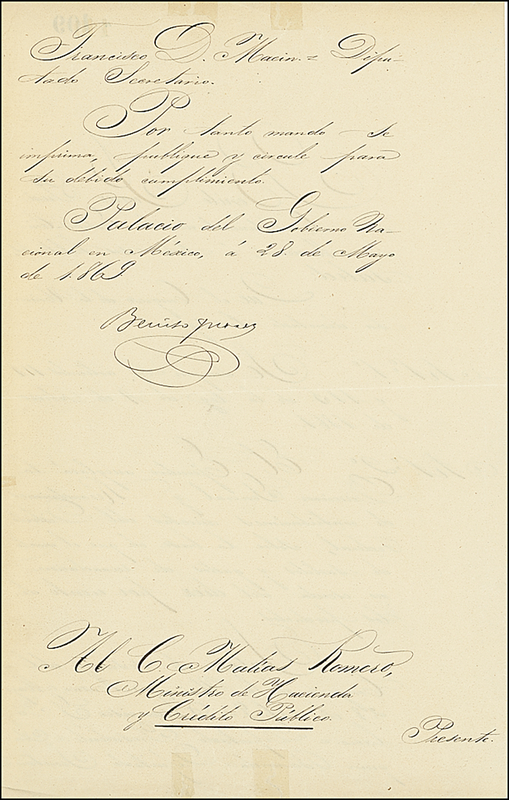 Francisco D. Macin = Dipu-
tado Secretario.
Por tanto mando se
imprima, publique y circule para
su debido cumplimiento.
Palacio del Gobierno Na-
cional en México, á 28. de Mayo
de 1869
Benito Juarez
Al C Matias Romero,
Ministro de Hacienda
y Crédito Público.
Presente.